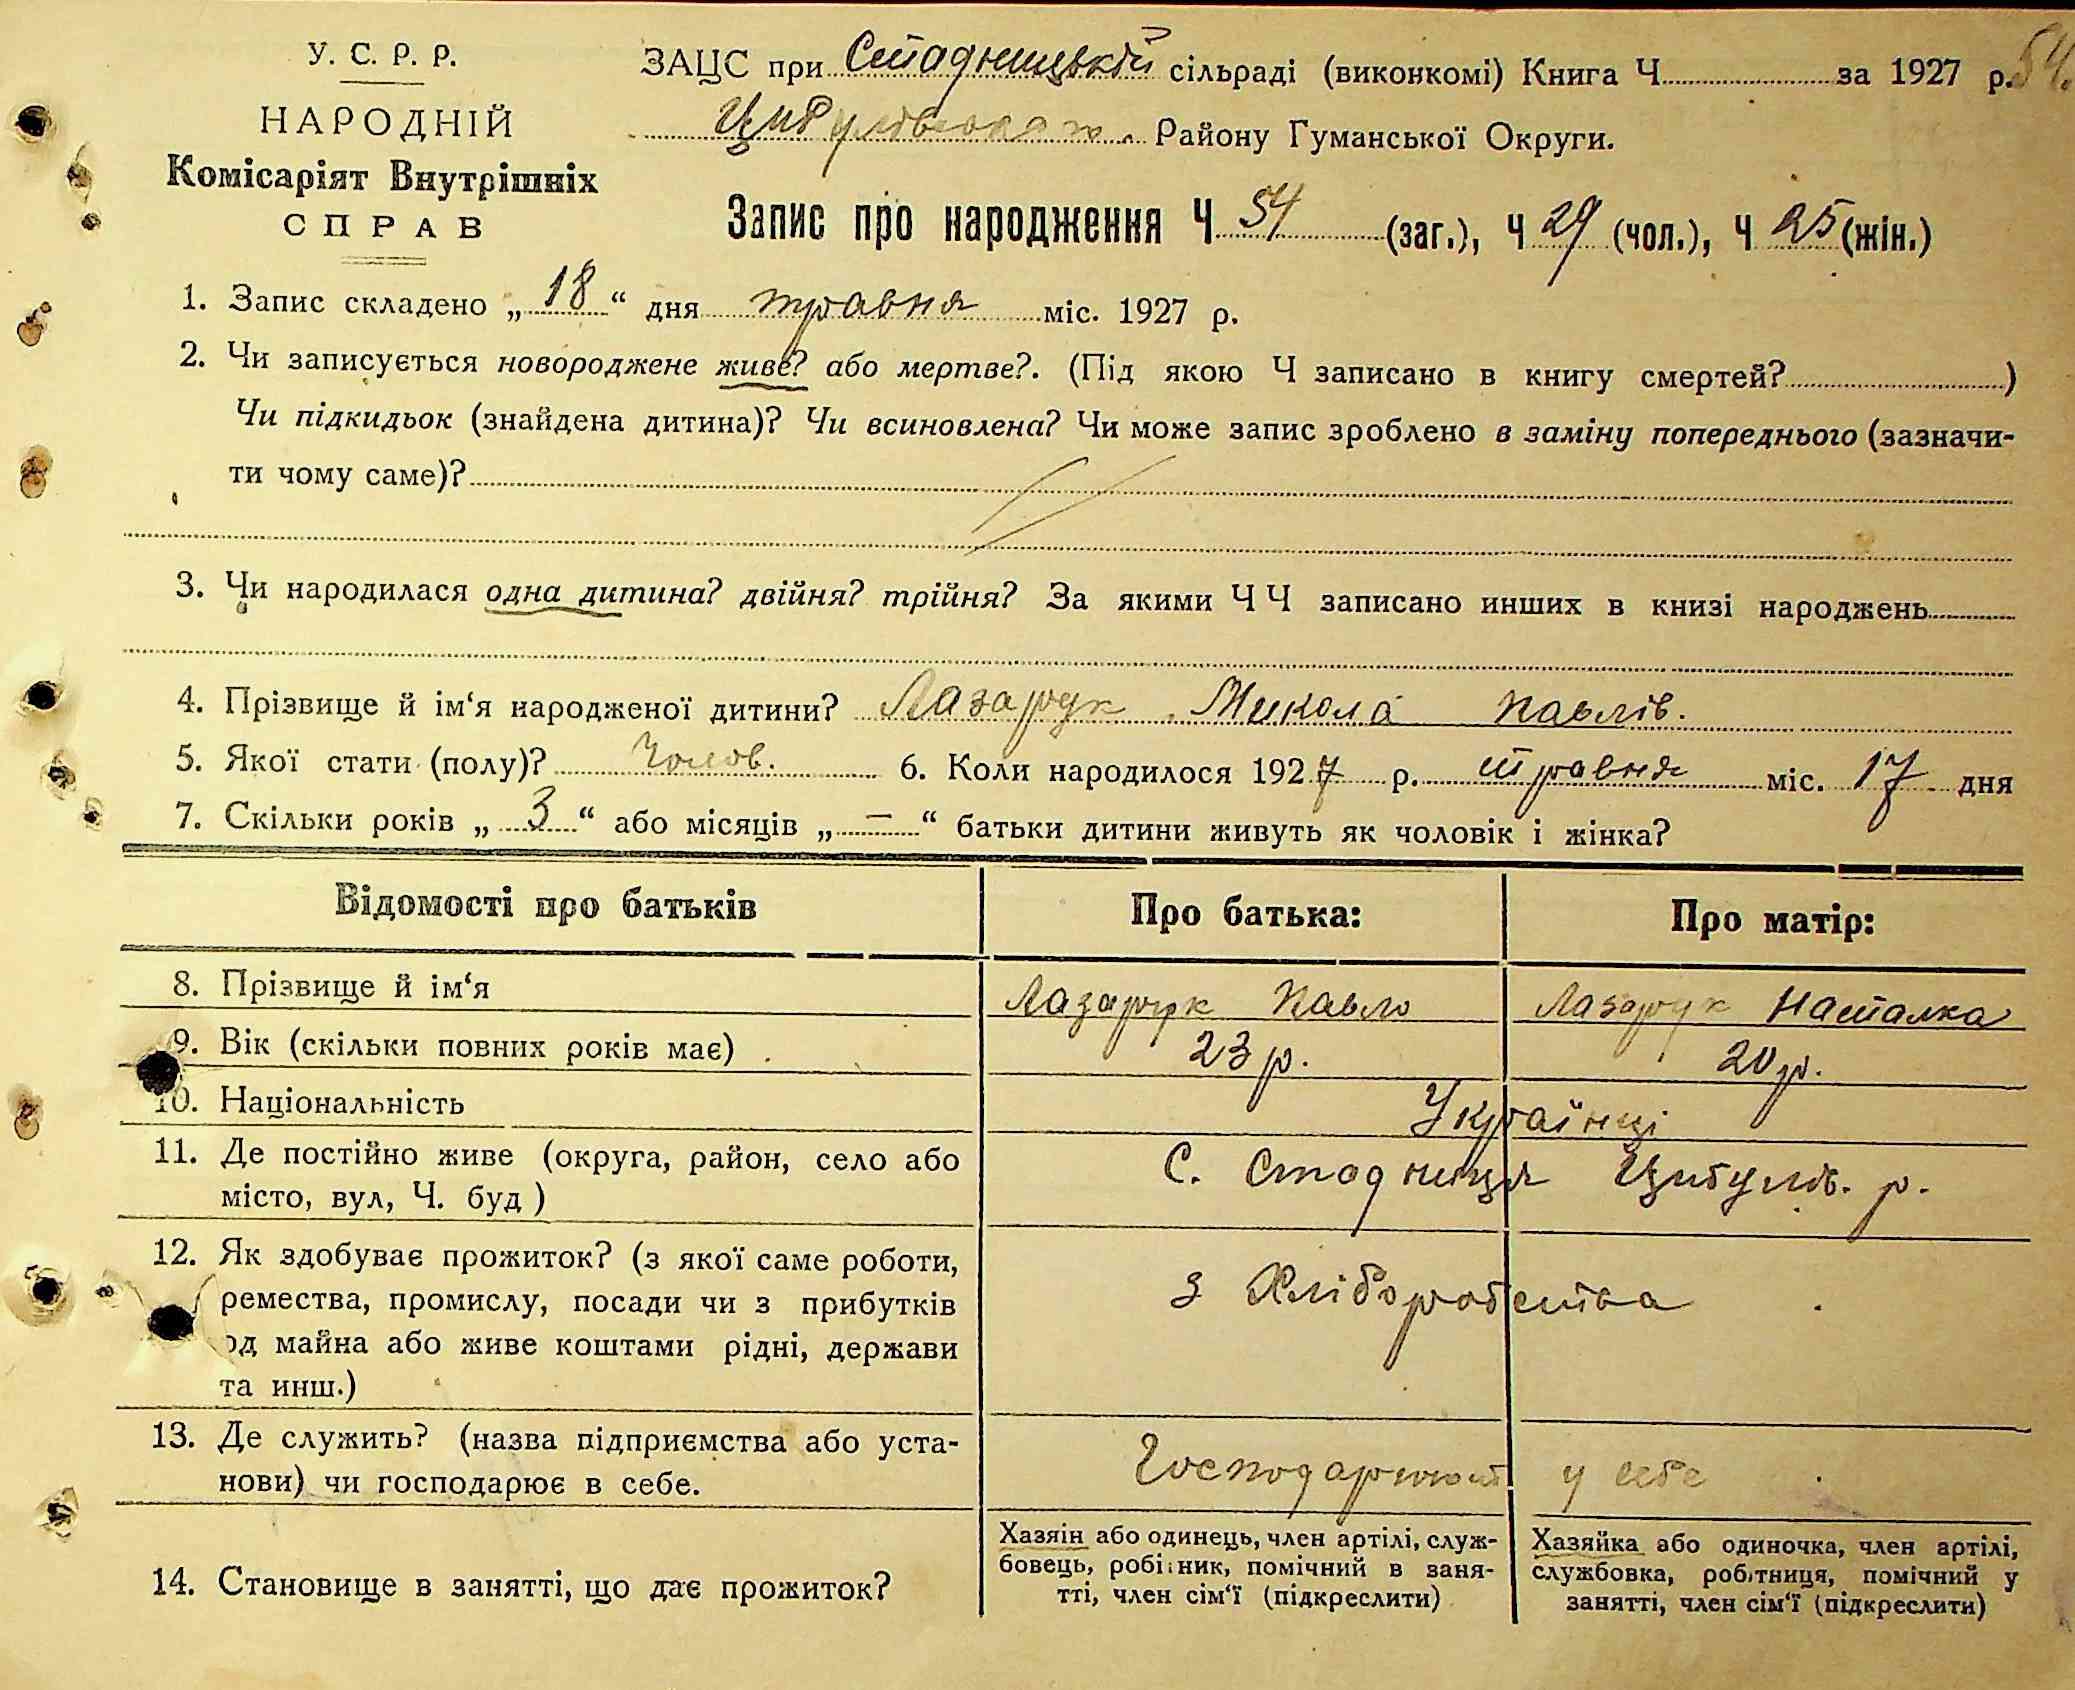 У. С. Р. Р.
НАРОДНІЙ
Комісаріят Внутрішніх
СПРАВ
ЗАЦС при Стадницькій сільраді (виконкомі) Книга Ч за 1927 р. 54.
Цибулівського Району Гуманської Округи.
Запис про народження Ч 54 (заг.), Ч 29 (чол.), Ч 25 (жін.)
1. Запис складено „ 18 “ дня травня міс. 1927 р.
2. Чи записується новороджене живе? або мертве?. (Під якою Ч записано в книгу смертей? )
Чи підкидьок (знайдена дитина)? Чи всиновлена? Чи може запис зроблено в заміну попереднього (зазначи-
ти чому саме)?
3. Чи народилася одна дитина? двійня? трійня? За якими ЧЧ записано инших в книзі народжень
4. Прізвище й ім‘я народженої дитини? Лазарук Микола Павлів.
5. Якої стати (полу)? Чолов. 6. Коли народилося 1927 р. травня міс. 17 дня
7. Скільки років „ 3 “ або місяців „ — “ батьки дитини живуть як чоловік і жінка?
Відомості про батьків Про батька: Про матір:
8. Прізвище й ім‘я Лазарук Павло Лазарук Наталка
9. Вік (скільки повних років має) 23 р. 20 р.
10. Національність Українці
11. Де постійно живе (округа, район, село або
місто, вул, Ч. буд ) С. Стадниця Цибулів. р.
12. Як здобуває прожиток? (з якої саме роботи,
ремества, промислу, посади чи з прибутків
од майна або живе коштами рідні, держави
та инш.)
з Хліборобства
13. Де служить? (назва підприємства або уста-
нови) чи господарює в себе.
Господарюют у себе
14. Становище в занятті, що дає прожиток?
Хазяін або одинець, член артілі, служ-
бовець, робітник, помічний в заня-
тті, член сім‘ї (підкреслити)
Хазяйка або одиночка, член артілі,
службовка, робітниця, помічний у
занятті, член сім‘ї (підкреслити)